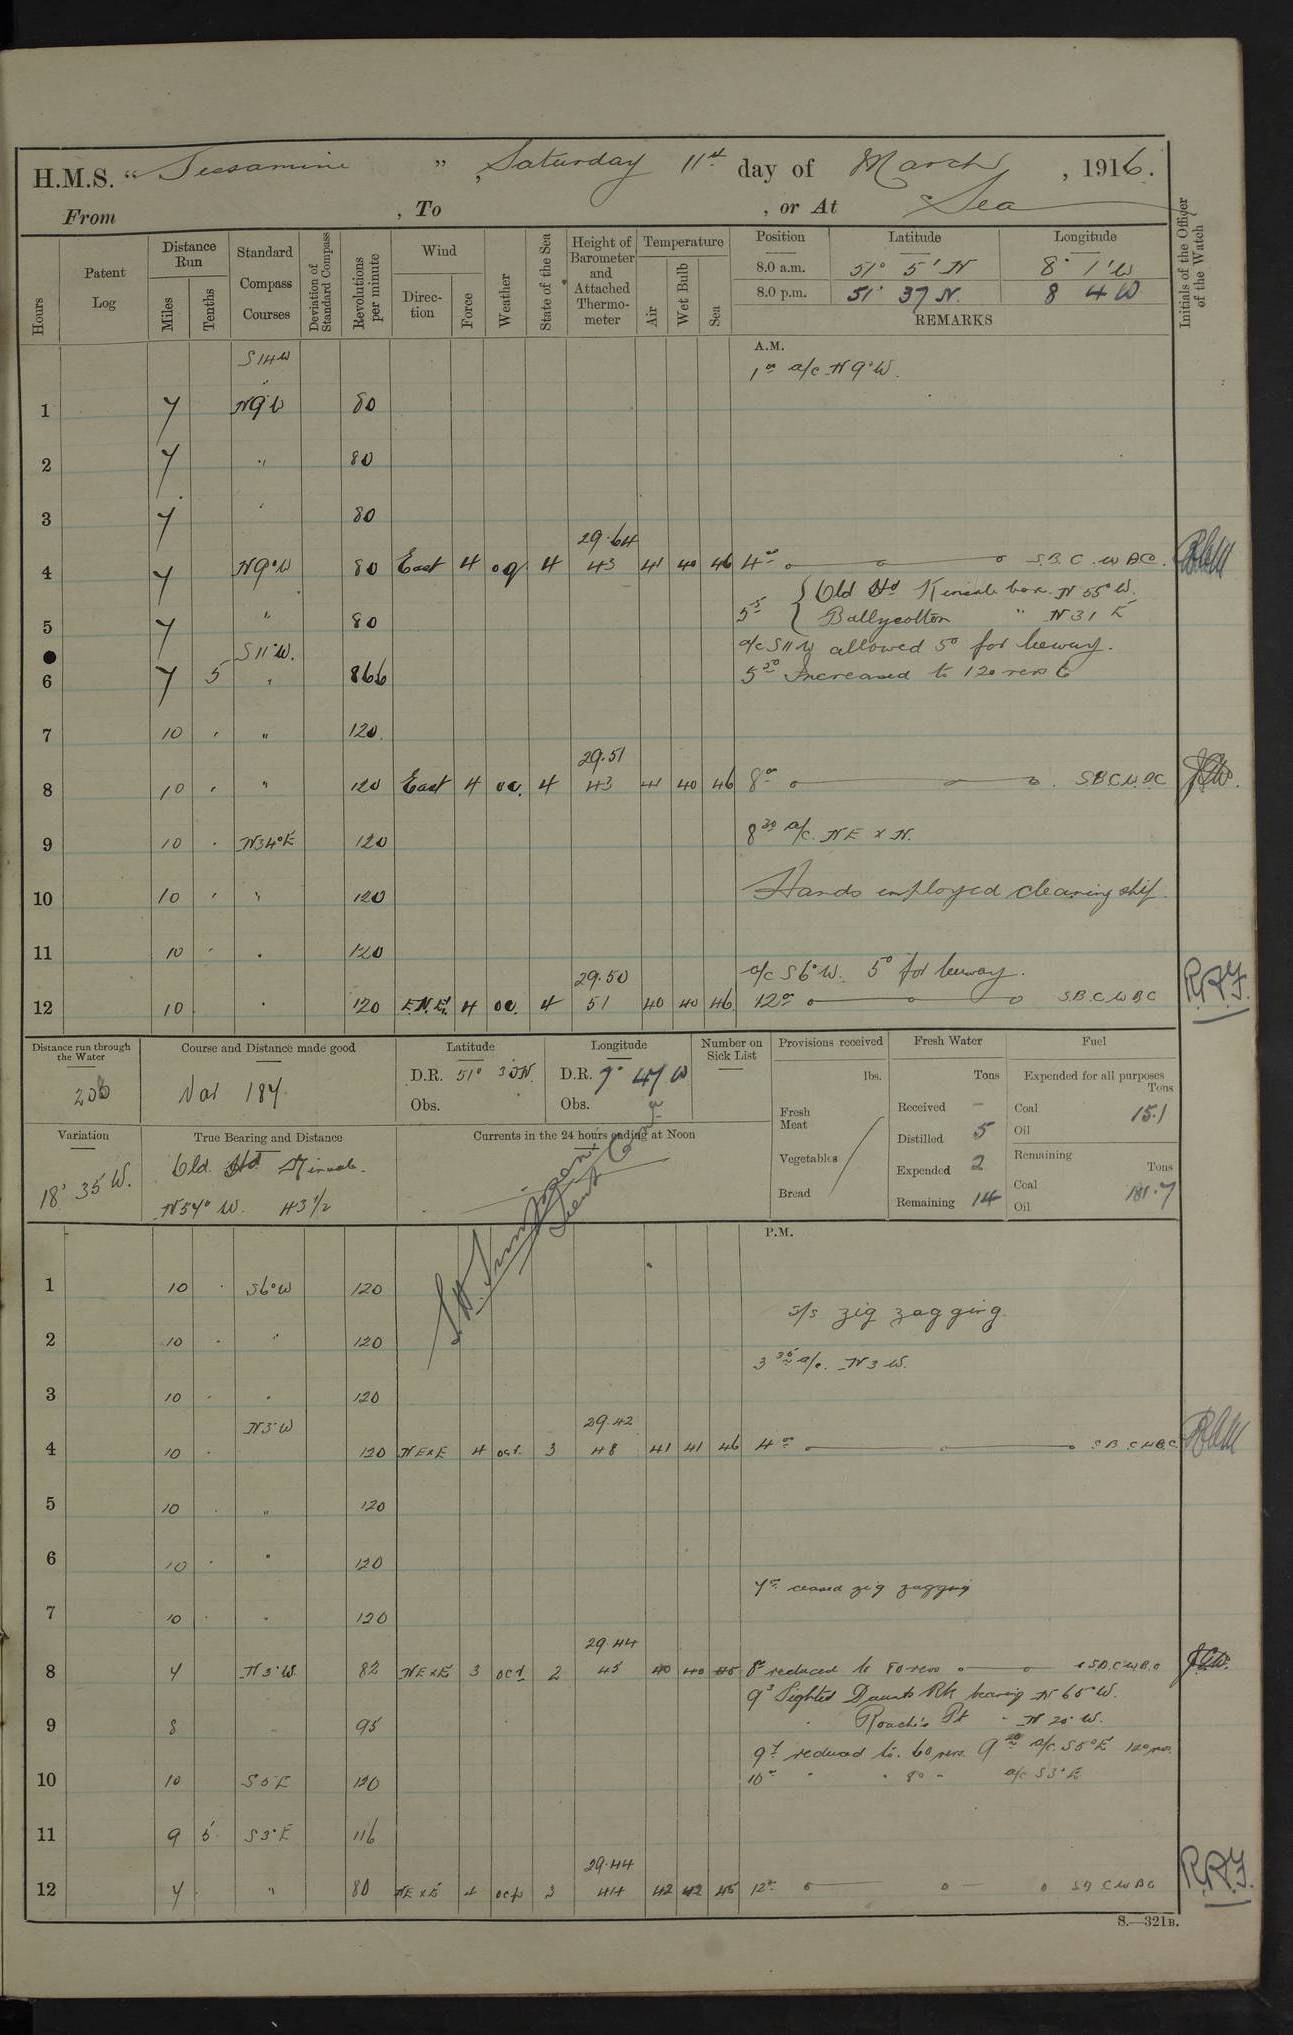 H.M.S. " Jessamine ", Saturday 11th day of March, 1916.
From , To , or At Sea
Hours
Patent Log
Distance Run
Miles
Tenths
Standard Compass Courses
Deviation of Standard Compass
Revolutions per minute
Wind
Direction
Force
Weather
State of the Sea
Height of Barometer and Attached Thermometer
Temperature
Air
Wet Bulb
Sea
Position Latitude Longitude
8.0 a.m. 51° 5' N 8° 1' W
8.0 p.m. 51° 37 N. 8 4 W
REMARKS
Initials of the Officer of the Watch
A.M.
S 14 W
1 00 a/c N 9° W.
1 7 N 9° W 80
2 7 " 80
3 7 " 80
29.64
4 7 N 9° W 80 East 4 og 4 43 41 40 46 4 00 S.B.C.W.B.C.
Old Hd Kinsale bore N 55° W.
5 7 " 80 5 15 Ballycotton " N 31 E
S 11° W. a/c S 11 W allowed 5° for leeway.
6 7 5 " 86.6 5 50 Increased to 120 revs
7 10 " 120
29.51
8 10 " 120 East 4 oc. 4 43 41 40 46 8 00 S.B.C.W.B.C
9 10 N 34° E 120 8 30 a/c. NE x N.
10 10 " 120 Hands employed cleaning ship.
11 10 " 120
29.50 a/c S 6° W. 5° for leeway.
12 10 " 120 E.N.E. 4 oc. 4 51 40 40 46 12 00 S.B.C.W.B.C R.A.F.
Distance run through the Water
208
Course and Distance made good
Var 184
Latitude
D.R. 51° 30 N.
Obs.
Longitude
D.R. 7° 47 W
Obs.
Number on Sick List
Provisions received
lbs.
Fresh Meat
Vegetables
Bread
Fresh Water
Tons
Received -
Distilled 5
Expended 2
Remaining 14
Fuel
Expended for all purposes
Tons
Coal 15.1
Oil
Remaining
Tons
Coal 181.7
Oil
Variation
18° 35 W.
True Bearing and Distance
Old Hd Kinsale.
N 54° W. 43 1/2
Currents in the 24 hours ending at Noon
Lieut Com
P.M.
1 10 S 6° W 120
zig zagging
2 10 " 120
3 35 a/c. N 3 W.
3 10 " 120
N 3° W 29.42
4 10 120 NE x E 4 ocr. 3 48 41 41 46 4 00 S.B.C.W.B.C.
5 10 " 120
6 10 " 120
7 00 ceased zig zagging
7 10 " 120
29.44
8 7 N 3° W. 82 NE x E 3 ocr 2 45 40 40 45 8 00 reduced to 80 revs S.B.C.W.B.C
9 3 Sighted Daunts Rk bearing N 65° W.
9 8 95 " Roche's Pt " N 20° W.
9 7 reduced to 60 revs. 9 20 a/c S 5° E 120 revs.
10 10 S 5° E 120 10 00 " " 80 " a/c S 3° E
11 9 5 S 3° E 116
29.44
12 7 " 80 NE x E 4 ocp 3 44 42 42 45 12 00 S.B.C.W.B.C R.A.F.
S.—321B.